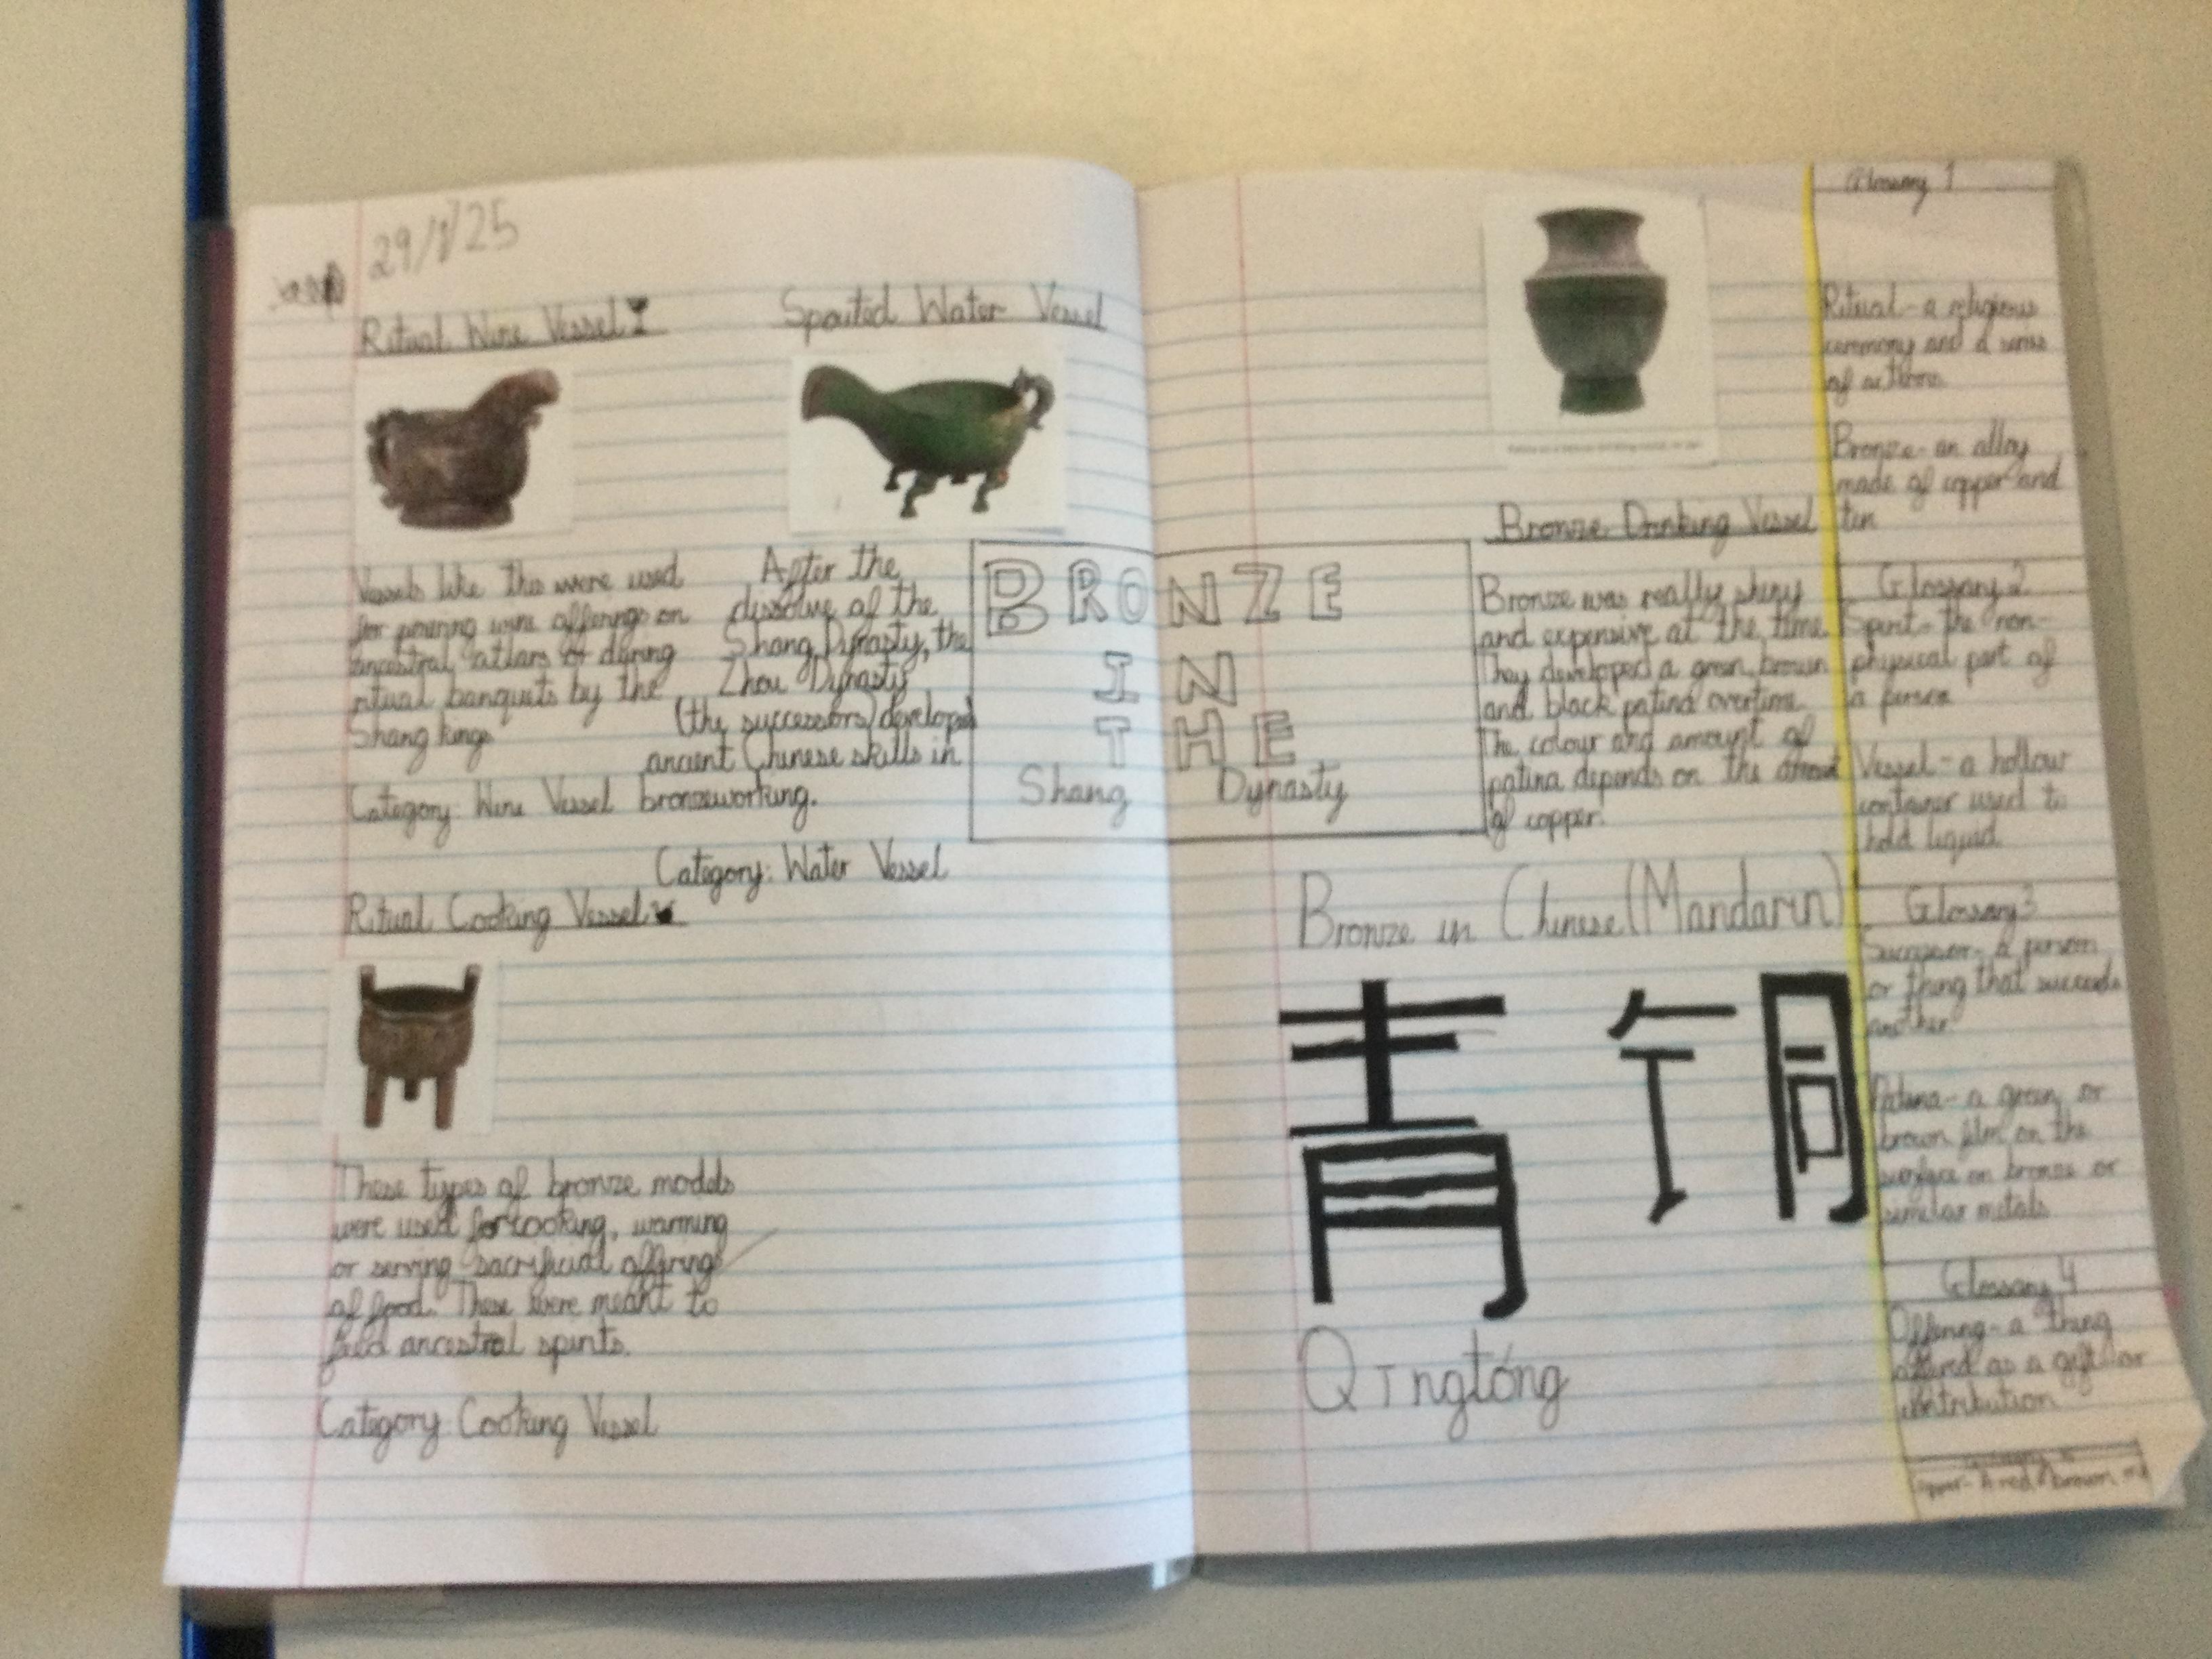 29/1/25
Ritual Wine Vessel
Vessels like this were used
for pouring wine offerings on
ancestral atlars or during
ritual banquets by the
Shang kings
Category: Wine Vessel
Spouted Water Vessel
After the
dissolve of the
Shang Dynasty, the
Zhou Dynasty
(the successors) developed
ancient Chinese skills in
bronzeworking.
Category: Water Vessel
Ritual Cooking Vessel
These types of bronze models
were used for cooking, warming
or serving sacrificial offerings
of food. These were meant to
feed ancestral spirits.
Category: Cooking Vessel
BRONZE
IN
THE
Shang Dynasty
Bronze Drinking Vessel
Bronze was really shiny
and expensive at the time
They developed a green, brown
and black patina overtime
The colour and amount of
patina depends on the amount
of copper.
Bronze in Chinese (Mandarin)
青铜
Qīngtóng
Glossary 1
Ritual - a religious
ceremony and a series
of actions
Bronze - an alloy
made of copper and
tin
Glossary 2
Spirit - the non-
physical part of
a person
Vessel - a hollow
container used to
hold liquid
Glossary 3
Successor - a person
or thing that succeeds
another
Patina - a green or
brown film on the
surface on bronze or
similar metals
Glossary 4
Offering - a thing
offered as a gift or
contribution
A red/brown